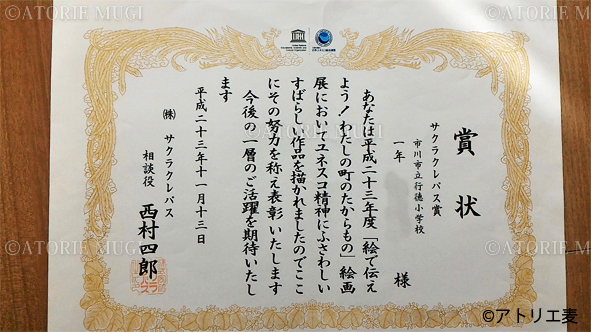 賞状
サクラクレパス賞
市川市立行徳小学校
一年
様
あなたは平成二十三年度「絵で伝え
よう!わたしの町のたからもの」絵画
展においてユネスコ精神にふさわしい
すばらしい作品を描かれましたのでここ
にその努力を称え表彰いたします
今後の一層のご活躍を期待いたし
ます
平成二十三年十一月十三日
㈱サクラクレパス
相談役 西村四郎
©ATORIE MUGI
©ATORIE MUGI
©ATORIE MUGI
©ATORIE MUGI
©ATORIE MUGI
©ATORIE MUGI
©アトリエ麦